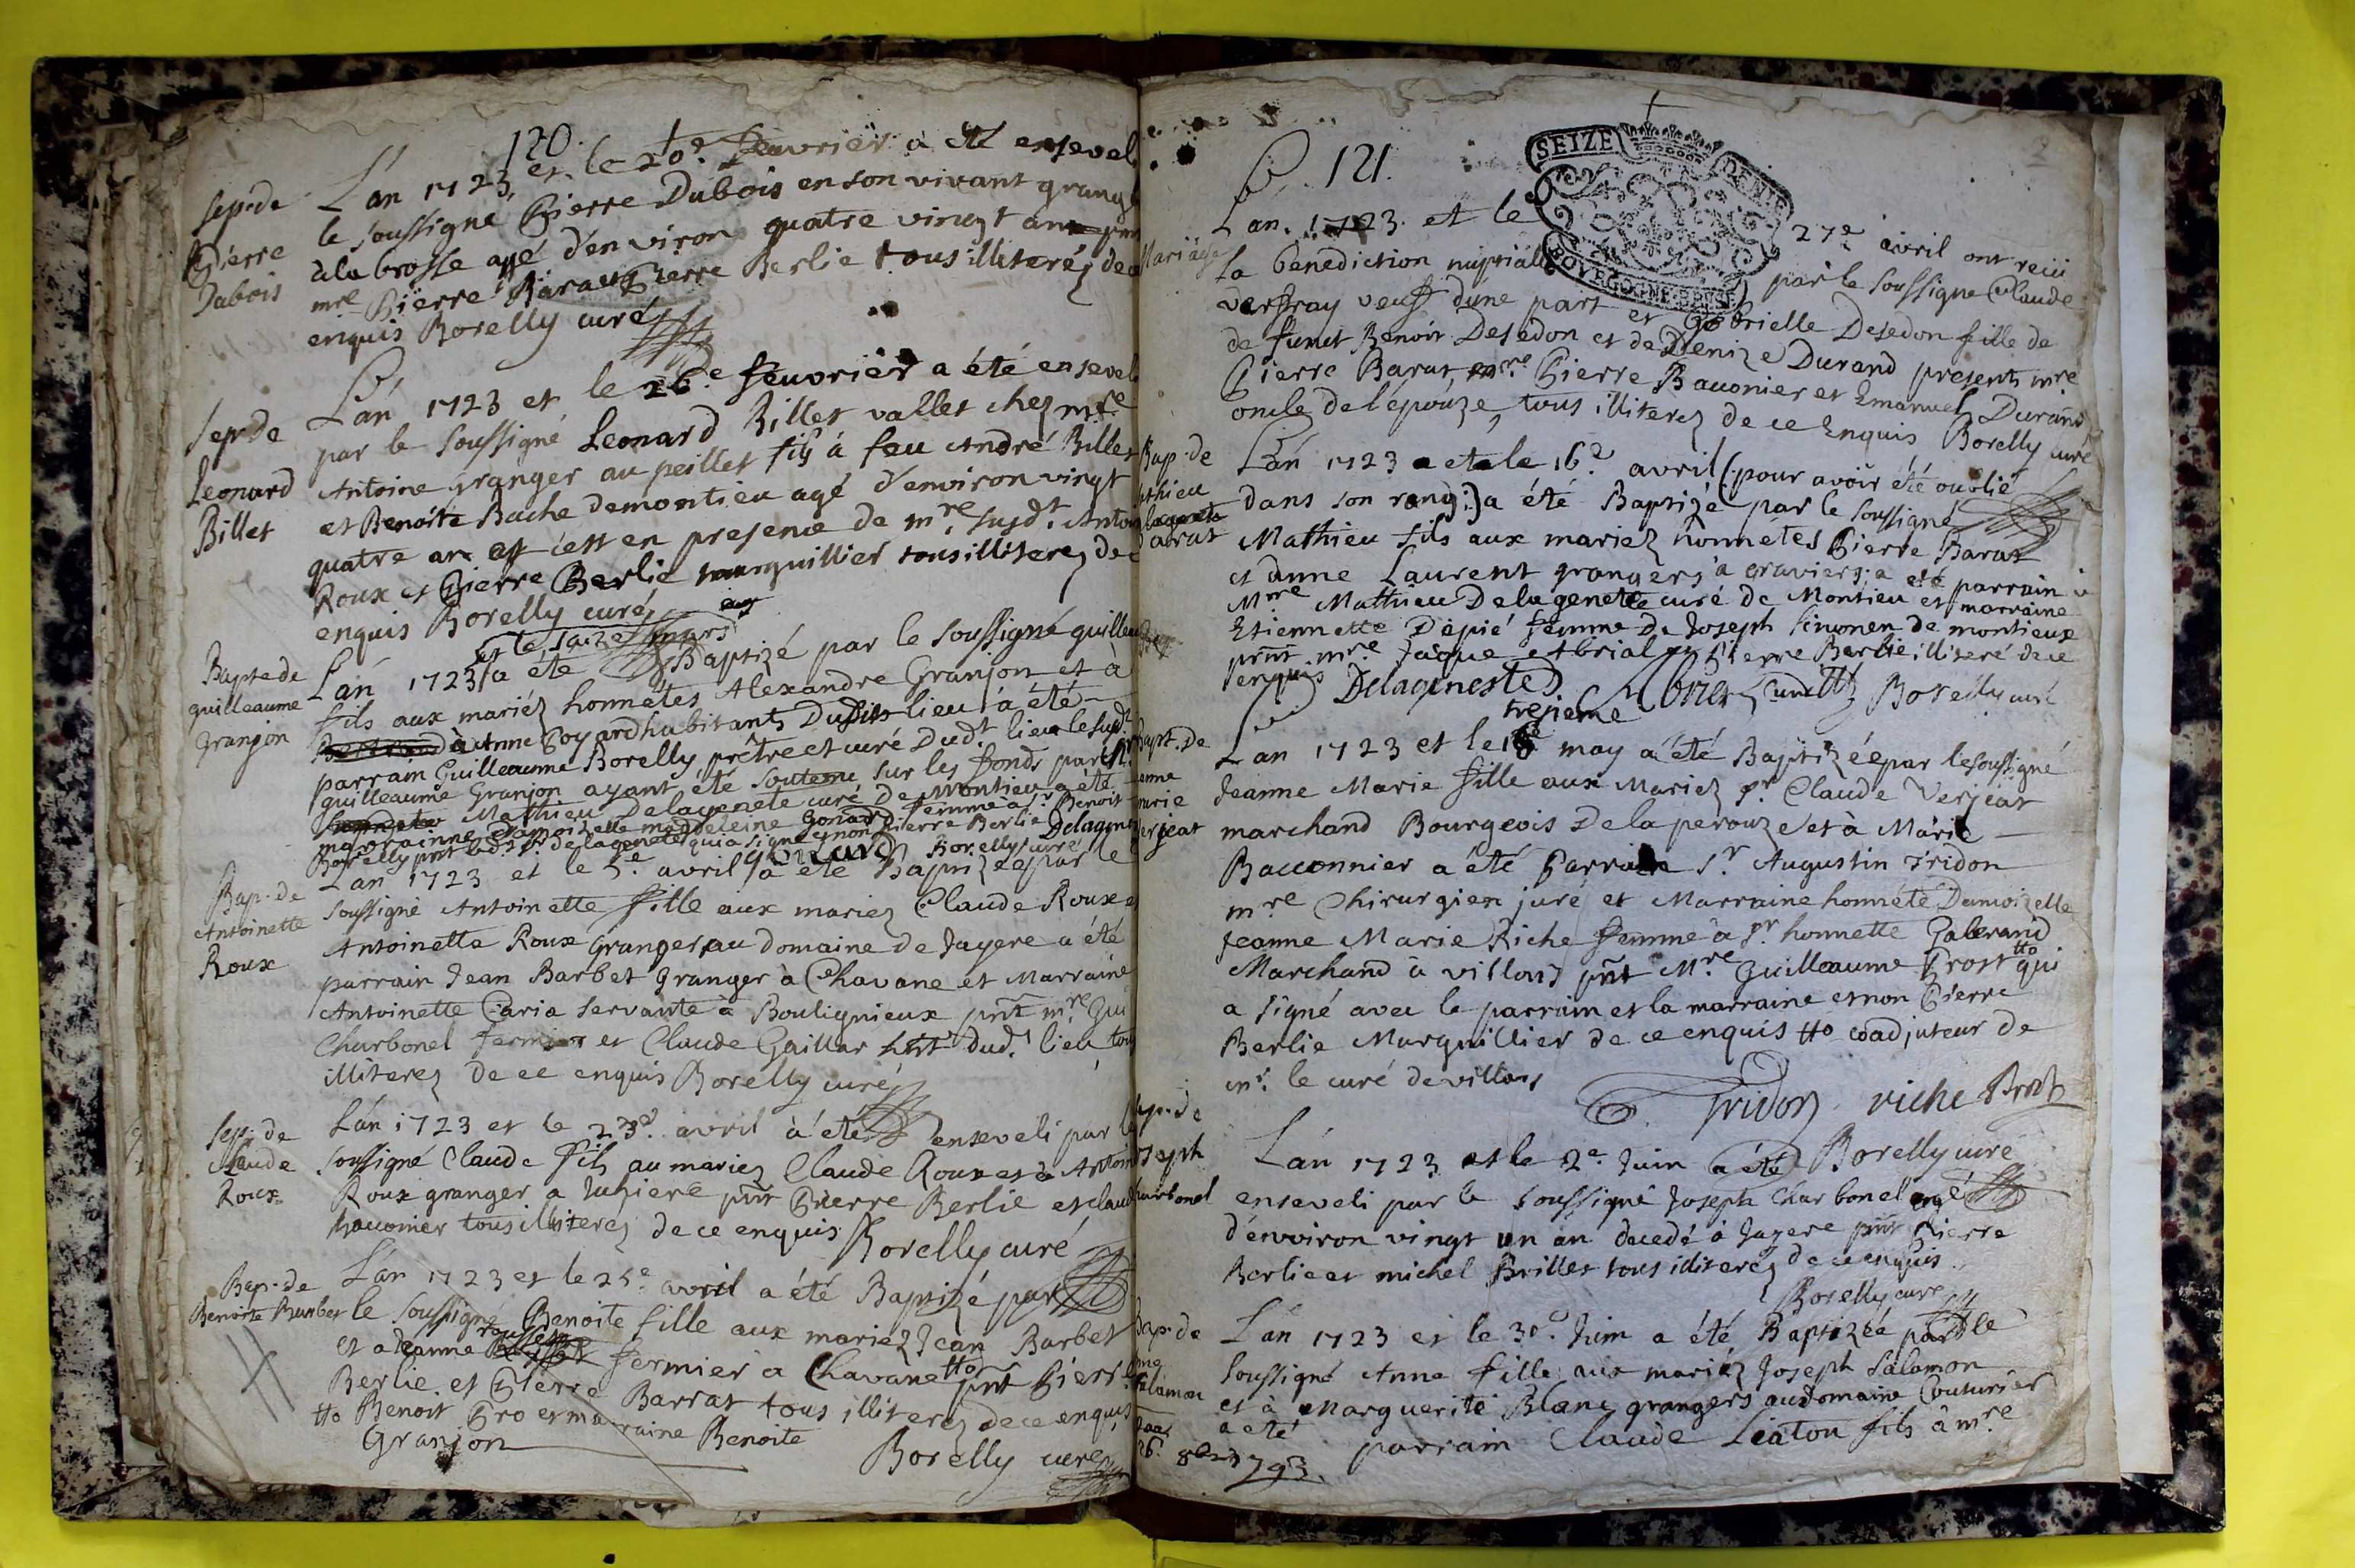 120.
L'an 1723 et le 20e feuvrier a été ensevel
Sep. de
Pierre
Dubois
le soussigné Pierre Dubois en son vivant grang
à la brosse agé d'environ quatre vingt an
mre Pierre Barat et Pierre Berlie tous illiterez de ce
enquis Borelly curé
Sep. de
Leonard
Billet
L'an 1723 et le 26.e feuvrier a été ensevel
par le soussigné Leonard Billet vallet chez mre
Antoine granger au peillet fils à feu André Billet
et Benoite Bache de montieu agé d'environ vingt
quatre an et c'est en presence de mre susdt. Antoin
Roux et Pierre Berlie marguillier tous illiterez de c
enquis Borelly curé
Bapt. de
guilleaume
Granjon
et le saize mars
L'an 1723 a été Baptizé par le soussigné guilleau
fils aux mariéz honnêtes Alexandre Granjon et à
à Anne Goyard habitants Dudit lieu à été
parrain Guilleaume Borelly prêtre et curé Dudt. lieu le susdt
guilleaume Granjon ayant été soutenu sur les fonds par Sr.
Mathieu Delagenete curé De Montieu a été
marrainne Damoizelle maddeleine Gonard femme à sr Benoit
Borelly pnt led. sr. Delagenete qui a signé et non Pierre Berlie Delagenes
Gonard Borelly curé
Bap. de
Antoinette
Roux
L'an 1723 et le 5.e avril a été Baptizée par le
soussigné Antoinette fille aux mariez Claude Roux e
Antoinette Roux Granger au domaine de Jayere a été
parrain Jean Barbet Granger à Chavane et Marraine
Antoinette Caria servante à Boulignieux pnt mre Gui
Charbonel fermier et Claude Gaillar hbt dud. lieu tou
illiterez de ce enquis Borelly curé
Sep. de
Claude
Roux
L'an 1723 et le 23e. avril à été enseveli par le
soussigné Claude fils au mariez Claude Roux et à Antoin
Roux granger a Juhiere pnt Pierre Berlie et claud
bauonier tous illiterez de ce enquis
Borelly curé
Bap. de
Benoite Barbet
L'an 1723 et le 25e avril a été Baptizé par
le soussigné Benoite fille aux mariez Jean Barbet
et a Jeanne fermier à Chavane tto pnt Pierre
Berlie et Pierre Barrat tous illiterez de ce enquis
tto Benoit Gro et marraine Benoite
Granjon
Borelly curé
121.
SEIZE DENIE
BOVRGOGNE BRESSE
Mariage
L'an. 1723. et le 27e avril ont reçu
la benediction nuptialle par le soussigné Claude
verfray veuf d'une part et Gabrielle Desedon fille de
de funet Benoit Desedon et de Denize Durand present mre
Pierre Barat, mre Pierre Bauonier et Emanuel Durand
oncle de l'épouze, tous illiterez de ce Enquis Borelly curé
Bap. de
thieu
lagenete
Barat
L'an 1723 a et le 16.e avril (:pour avoir été oublié
dans son rang:) a été Baptizé par le soussigné
Mathieu fils aux mariez honnétes Pierre Barat
et Anne Laurent grangers à graviers; a eté parrain
Mre Mathieu Delagenete curé de Montieu et marraine
Etiennette Depié femme de Joseph Simonen de montieux
pnt mre Jaque Abrial et Pierre Berlie illiteré de ce
enquis Delageneste Abrial Borelly curé
Bapt. de
anne
marie
verjeat
trezieme
L'an 1723 et le may a été Baptizée par le soussigné
Jeanne Marie fille aux Mariez sr Claude Verjeat
marchand Bourgeois De la perouze et à Marie
Bacconnier a été Parrain Sr. Augustin Tridon
mre Chirurgien juré et Marraine honnéte Damoizelle
Jeanne Marie Riche femme à sr. honnette Galerand
Marchand à villars pnt Mre Guilleaume Prost tto qui
a signé avec le parrain et la marraine et non Pierre
Berlie Marguillier de ce enquis tto coadjuteur de
mr. le curé de villars
Tridon riche Prost
Sep. de
oseph
harbonel
L'an 1723 et le 2e. Juin a été Borelly curé
enseveli par le soussigné Joseph Charbonel agé
d'environ vingt un an decedé à Jayere pnt Pierre
Berlie et michel Brillet tous illiterez de ce enquis
Borelly curé
Bap. de
ne
Salamon
L'an 1723 et le 30e. Juin a été Baptizée par le
soussigné Anne fille aux mariéz Joseph Salamon
et à Marguerite Blanc grangers au domaine Couturier
a été parrain Claude Liaton fils à mre
26. 8bre 1793.